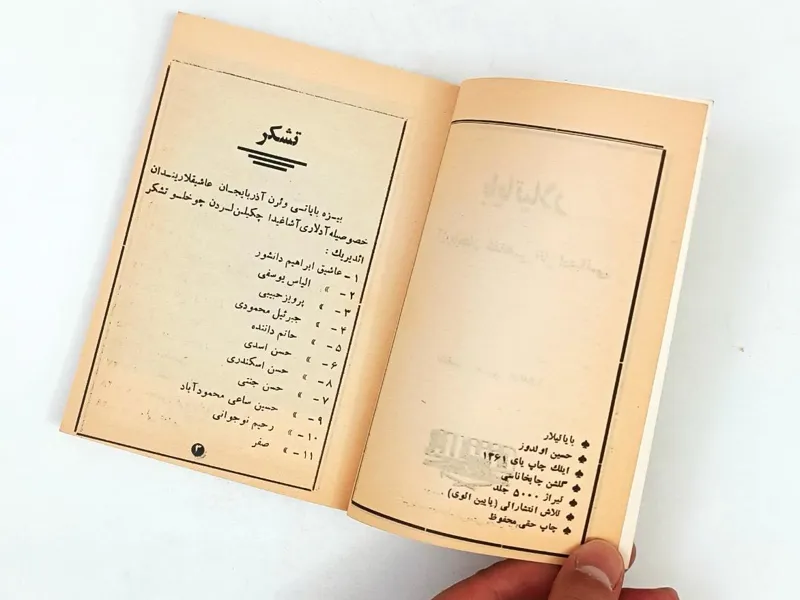 تشکر
بیـزه بایاتـی وئرن آذربایجـان عاشیقلاریندان
خصوصیله آدلاری آشاغیدا چکیلـن‌لـردن چوخلـو تشکر
ائدیریك :
۱ – عاشیق ابراهیم دانشور
۲ – » الیاس یوسفی
۳ – » پرویز حبیبی
۴ – » جبرئیل محمودی
۵ – » حاتم داننده
۶ – » حسن اسدی
۸ – » حسن اسکندری
۷ – » حسن جنتی
۹ – » حسین ساعی محمودآباد
۱۰ – » رحیم نوجوانی
۱۱ – » صفر
۳
♠ بایاتیلار
♠ حسین اولدوز
♠ ایلك چاپ یای ۱۳۶۱
♠ گلشن چاپخاناسی
♠ تیراژ ۵۰۰۰ جلد
♠ تلاش انتشاراتی (یایین ائوی)
♠ چاپ حقی محفوظ